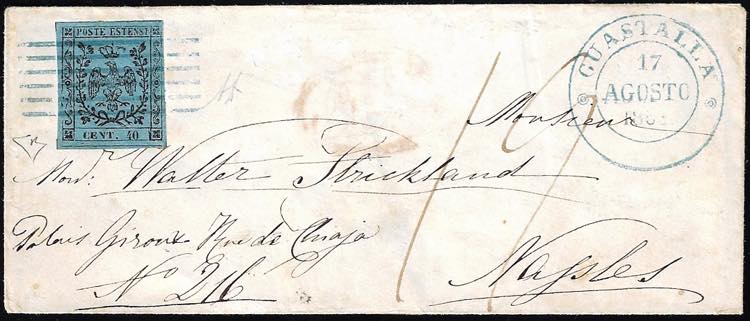 POSTE ESTENSI
CENT. 40
GUASTALLA
17
AGOSTO
Monsieur
Monr. Walter Strickland
Palais Giroux Rue de Chiaja
No 216
Naples